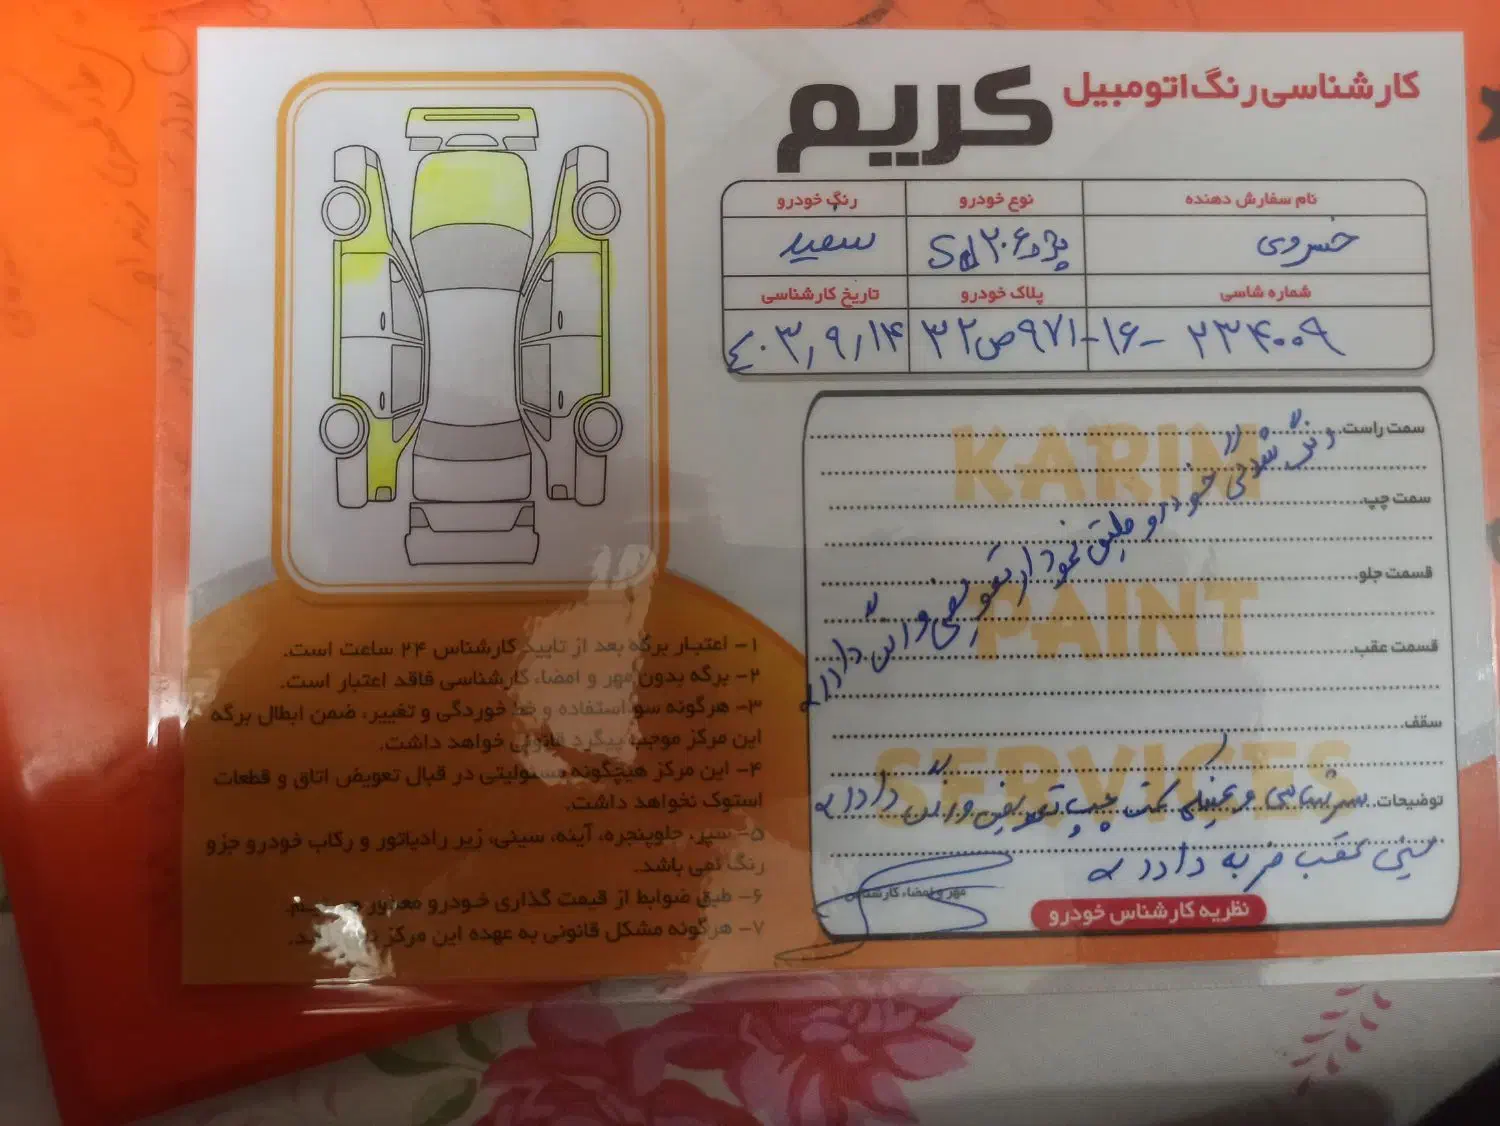 کارشناسی رنگ اتومبیل کریم
نام سفارش دهنده
نوع خودرو
رنگ خودرو
خسروی
پژو ۲۰۶ Sd
سفید
شماره شاسی
پلاک خودرو
تاریخ کارشناسی
۲۳۴۰۰۹
۳۲ص۹۷۱-۱۶-
۴۰۳,۹,۱۴
KARIM
PAINT
SERVICES
سمت راست
سمت چپ
قسمت جلو
قسمت عقب
سقف
توضیحات
رنگ شدگی خودرو طبق نمودار تعویضی و رنگ دارد
سرشاسی و سمت چپ تعویض و رنگ دارد
سینی عقب ضربه دارد
مهر و امضاء کارشناس
نظریه کارشناس خودرو
۱- اعتبار برگه بعد از تایید کارشناس ۲۴ ساعت است.
۲- برگه بدون مهر و امضاء کارشناسی فاقد اعتبار است.
۳- هرگونه سو استفاده و خط خوردگی و تغییر، ضمن ابطال برگه
این مرکز موجب پیگرد قانونی خواهد داشت.
۴- این مرکز هیچگونه مسئولیتی در قبال تعویض اتاق و قطعات
استوک نخواهد داشت.
۵- سپر، جلوپنجره، آینه، سینی، زیر رادیاتور و رکاب خودرو جزو
رنگ نمی باشد.
۶- طبق ضوابط از قیمت گذاری خودرو معذور
۷- هرگونه مشکل قانونی به عهده این مرکز